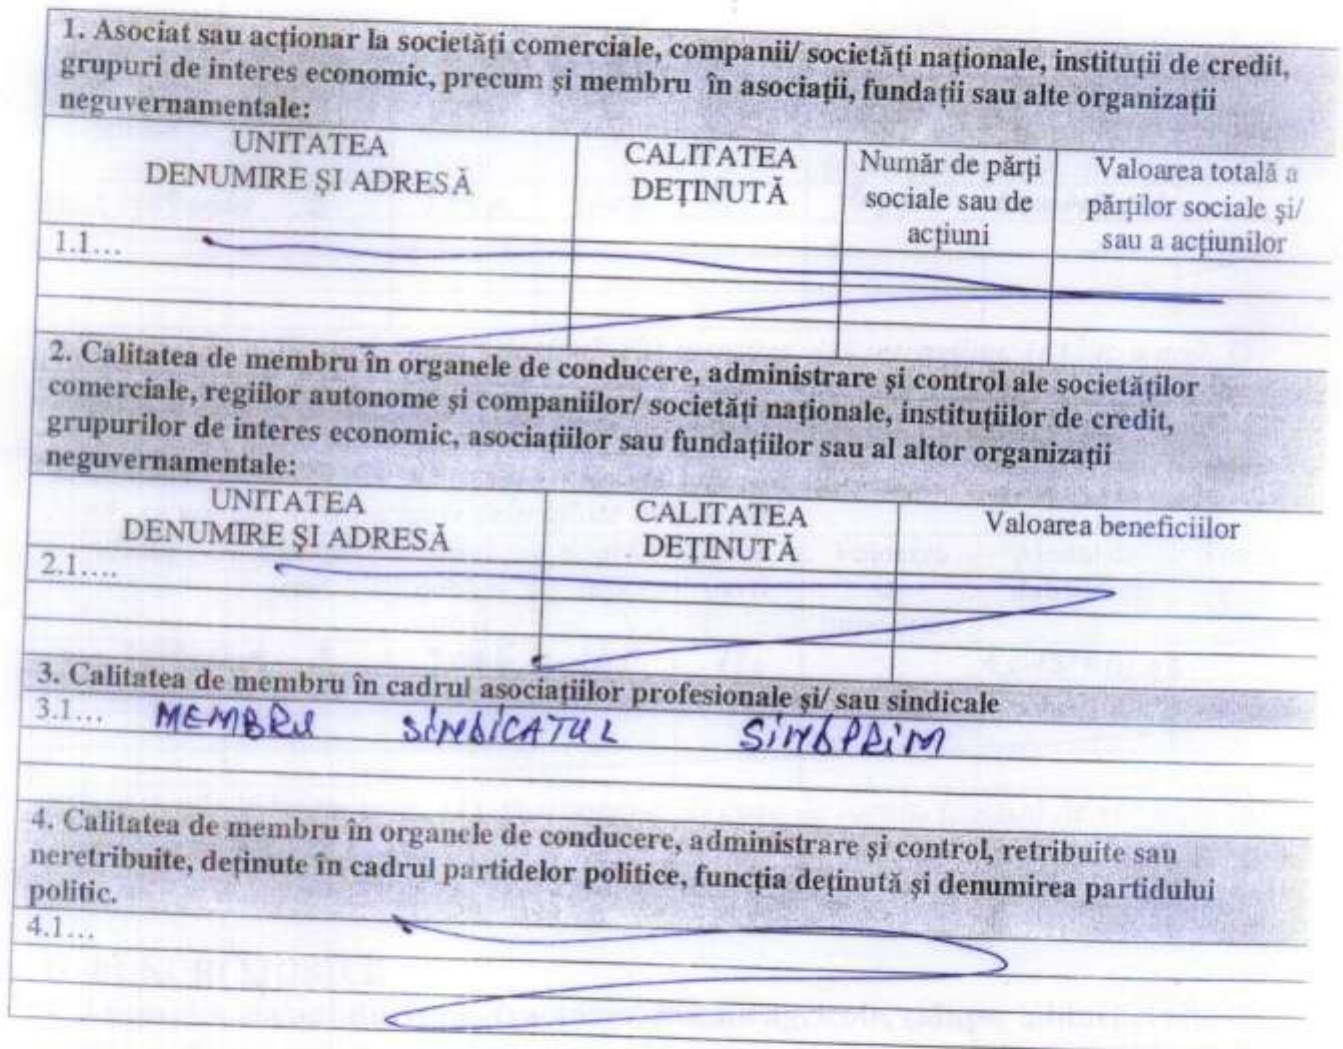 1. Asociat sau acționar la societăți comerciale, companii/ societăți naționale, instituții de credit,
grupuri de interes economic, precum și membru în asociații, fundații sau alte organizații
neguvernamentale:
UNITATEA
DENUMIRE ȘI ADRESĂ
CALITATEA
DEȚINUTĂ
Număr de părți
sociale sau de
acțiuni
Valoarea totală a
părților sociale și/
sau a acțiunilor
1.1...
2. Calitatea de membru în organele de conducere, administrare și control ale societăților
comerciale, regiilor autonome și companiilor/ societăți naționale, instituțiilor de credit,
grupurilor de interes economic, asociațiilor sau fundațiilor sau al altor organizații
neguvernamentale:
UNITATEA
DENUMIRE ȘI ADRESĂ
CALITATEA
DEȚINUTĂ
Valoarea beneficiilor
2.1....
3. Calitatea de membru în cadrul asociațiilor profesionale și/ sau sindicale
3.1... MEMBRU SINDICATUL SINDPRIM
4. Calitatea de membru în organele de conducere, administrare și control, retribuite sau
neretribuite, deținute în cadrul partidelor politice, funcția deținută și denumirea partidului
politic.
4.1...